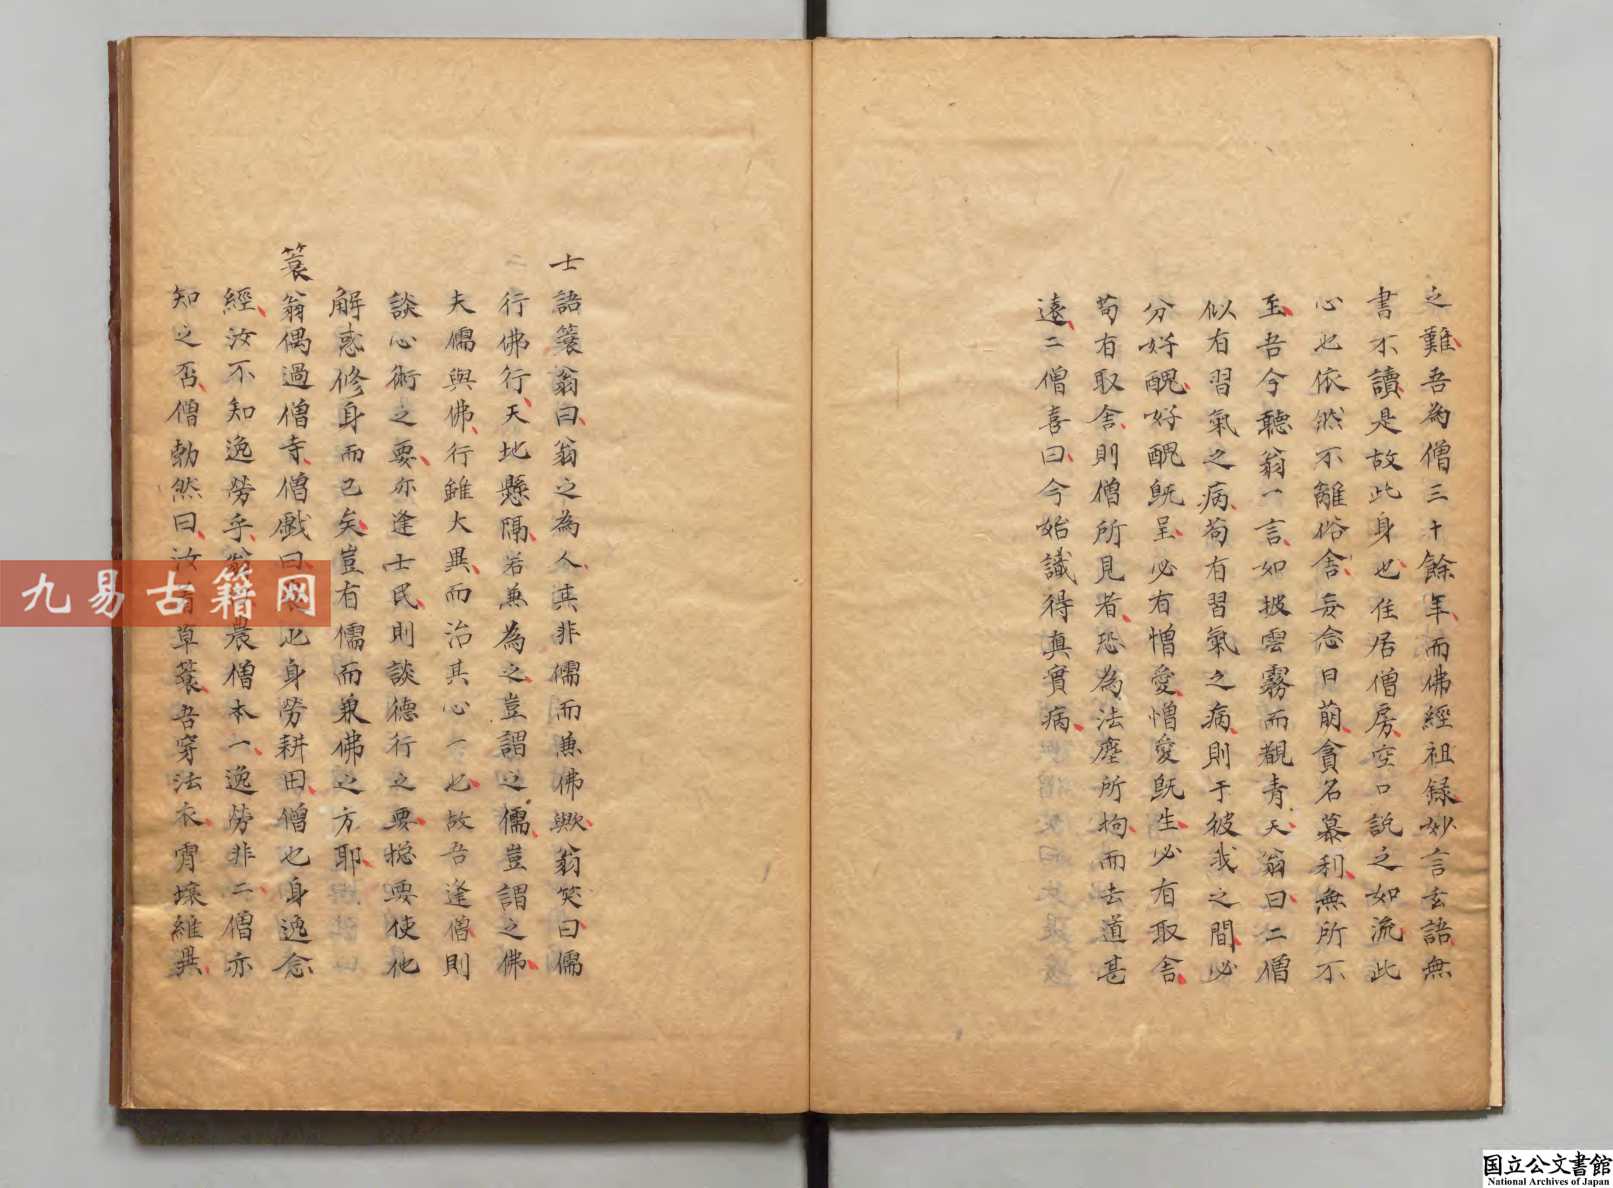 之難吾為僧三十餘年而佛經祖録妙言玄語無
書不讀是故此身也住居僧房空口說之如流此
心也依然不離俗舍妄念日萠貪名慕利無所不
至吾今聽翁一言如披雲霧而觀青天翁曰二僧
似有習氣之病苟有習氣之病則于彼我之間必
分好醜好醜既呈必有憎愛憎愛既生必有取舍
苟有取舍則僧所見者恐為法塵所拘而去道甚
遠二僧喜曰今始識得真實病
士語簑翁曰翁之為人其非儒而兼佛歟翁笑曰儒
行佛行天地懸隔若兼為之豈謂之儒豈謂之佛
夫儒與佛行雖大異而治其心一也故吾逢僧則
談心術之要亦逢士民則談德行之要揔要使他
解惑修身而已矣豈有儒而兼佛之方耶
簑翁偶過僧寺僧戲曰 也身勞耕田僧也身逸念
經汝不知逸勞乎翁 農僧本一逸勞非二僧亦
知之否僧勃然曰汝 草簑吾穿法衣霄壤維異
九易古籍网
国立公文書館
National Archives of Japan